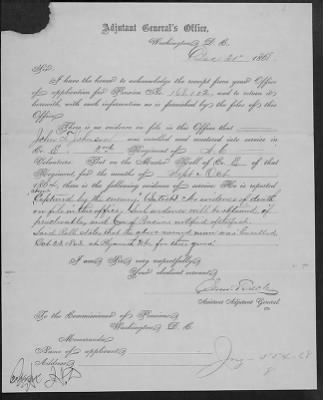 Adjutant General's Office,
Washington, D. C.
Dec 21st 186
Sir:
I have the honor to acknowledge the receipt from your Office
of application for Pension No. 162,102, and to return it
herewith, with such information as is furnished by the files of this
Office.
There is no evidence on file in this Office that
John T. Johnson was enrolled and mustered into service in
Co. 2nd Regiment of N.C.
Volunteers. But on the Muster Roll of Co. of that
Regiment for the months of Sept & Oct
1864, there is the following evidence of service: He is reported
"Captured by the enemy" No evidence of death
on file in this office. Such evidence will be obtained if
practicable and Com of Pensions notified
Said Roll states that the above named man was Enrolled
Oct at Plymouth N.C. for three years
I am, Sir, very respectfully,
Your obedient servant,
Assistant Adjutant General
To the Commissioner of Pensions,
Washington, D. C.
Memoranda:
Name of applicant,
Address,